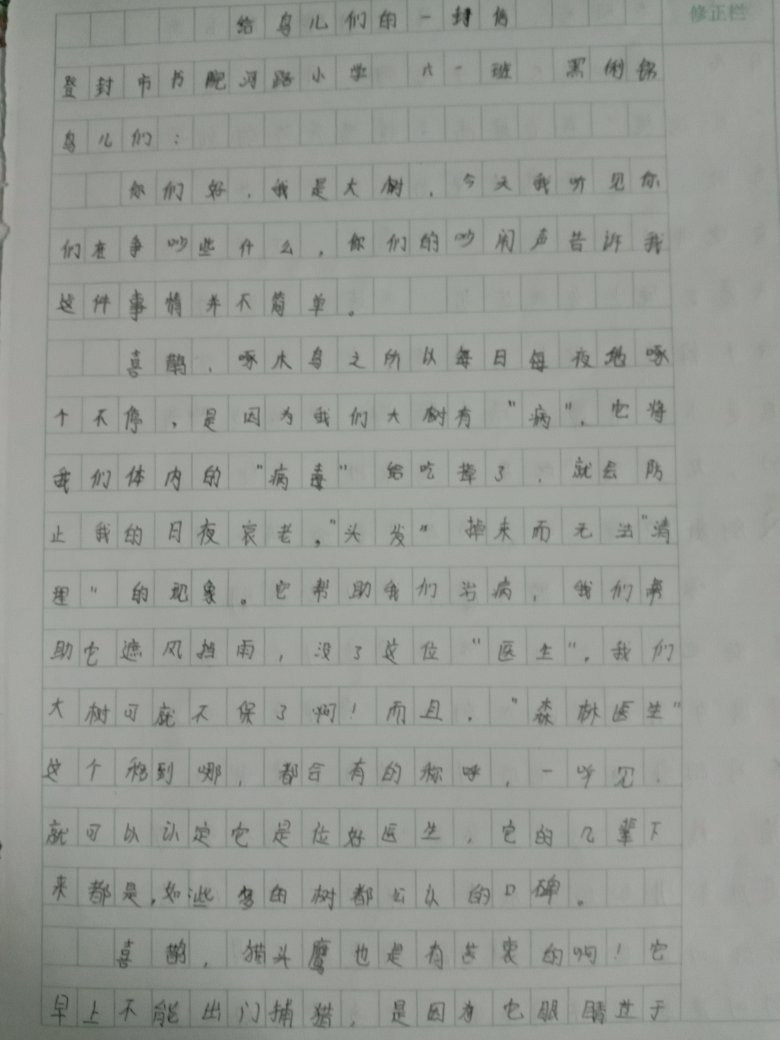 修正栏
给鸟儿们的一封信
登封市书院河路小学 六一班
鸟儿们：
你们好，我是大树，今天我听见你
们在争吵些什么，你们的吵闹声告诉我
这件事情并不简单。
喜鹊，啄木鸟之所以每日每夜地啄
个不停，是因为我们大树有“病”，它将
我们体内的“病毒”给吃掉了，就会防
止我的日夜衰老，“头发”掉来而无法“清
理”的现象。它帮助我们治病，我们帮
助它遮风挡雨，没了这位“医生”，我们
大树可就不保了啊！而且，“森林医生”
这个移到哪，都会有的称呼，一听见，
就可以认定它是位好医生，它的几辈下
来都是，如此多的树都公认的口碑。
喜鹊，猫头鹰也是有苦衷的啊！它
早上不能出门捕猎，是因为它眼睛过于